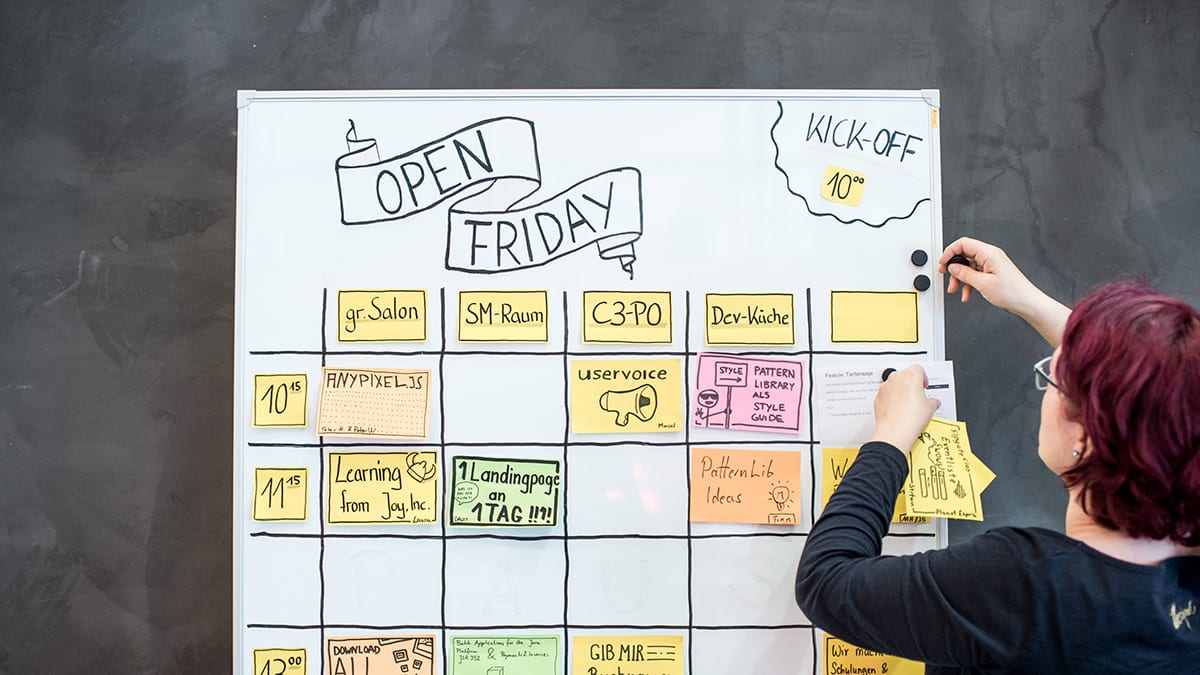 OPEN
FRIDAY
KICK-OFF
10⁰⁰
gr. Salon
SM-Raum
C3-PO
Dev-Küche
10¹⁵
ANYPIXEL.JS
Peter H. & Peter W.
uservoice
Marcel
STYLE
PATTERN
LIBRARY
ALS
STYLE
GUIDE
Feature: Tarifansage
11¹⁵
Learning
from Joy, Inc.
Laura
1 Landingpage
an
1 TAG !!!!
Pattern Lib
Ideas
TIMM
Eventliste
13⁰⁰
DOWNLOAD
ALL
Batch Applications for the Java
Platform
JSR 352 &
GIB MIR
Wir machen
Schulungen &